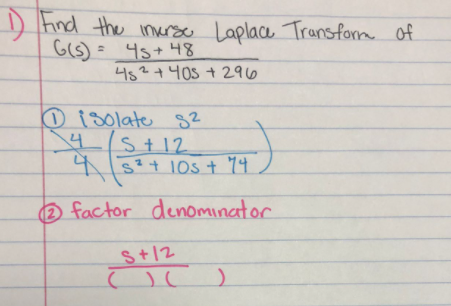 1) Find the inverse Laplace Transform of
G(s) = 4s + 48
4s² + 40s + 296
① isolate s²
4/4 (s + 12 / s² + 10s + 74)
② factor denominator
s + 12
( ) ( )